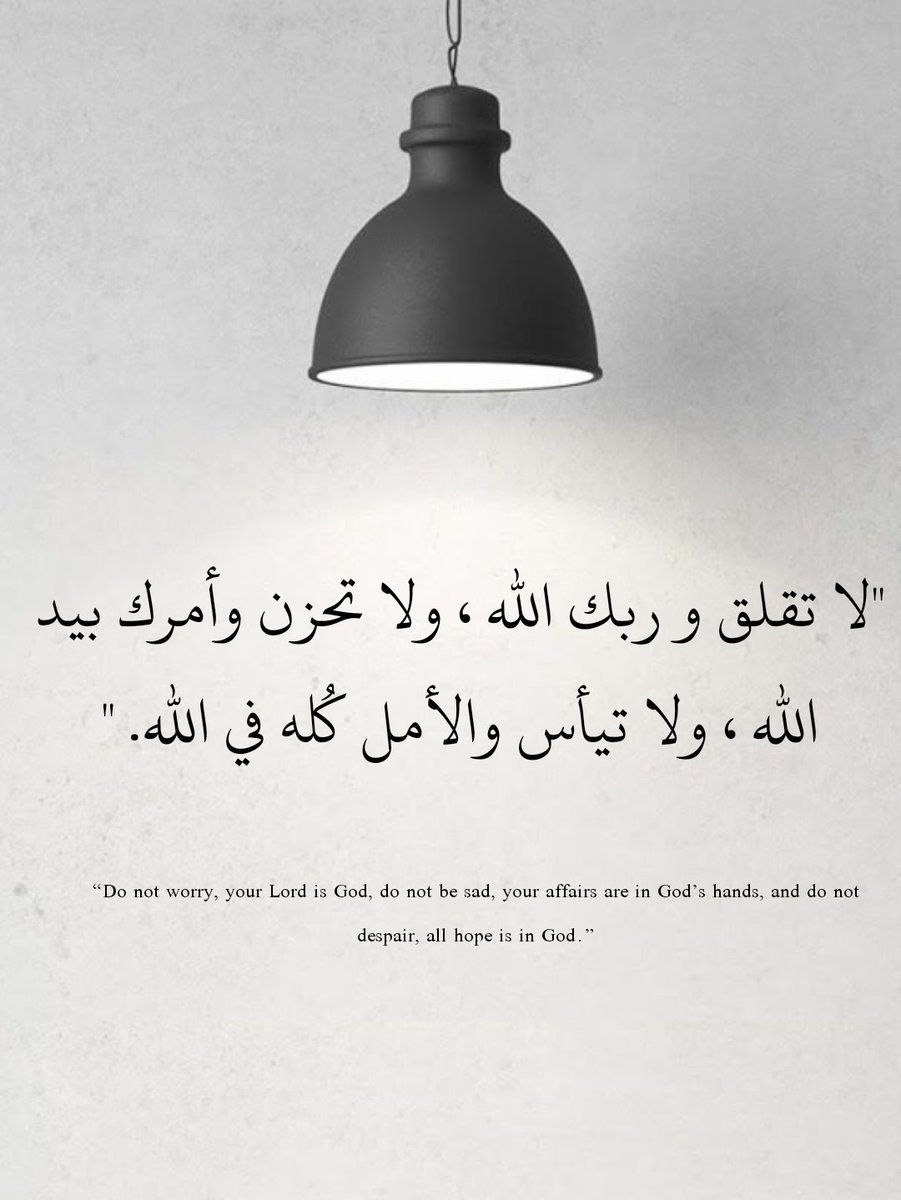 "لا تقلق و ربك الله ، ولا تحزن وأمرك بيد
الله ، ولا تيأس والأمل كُله في الله. "
“Do not worry, your Lord is God, do not be sad, your affairs are in God’s hands, and do not
despair, all hope is in God.”